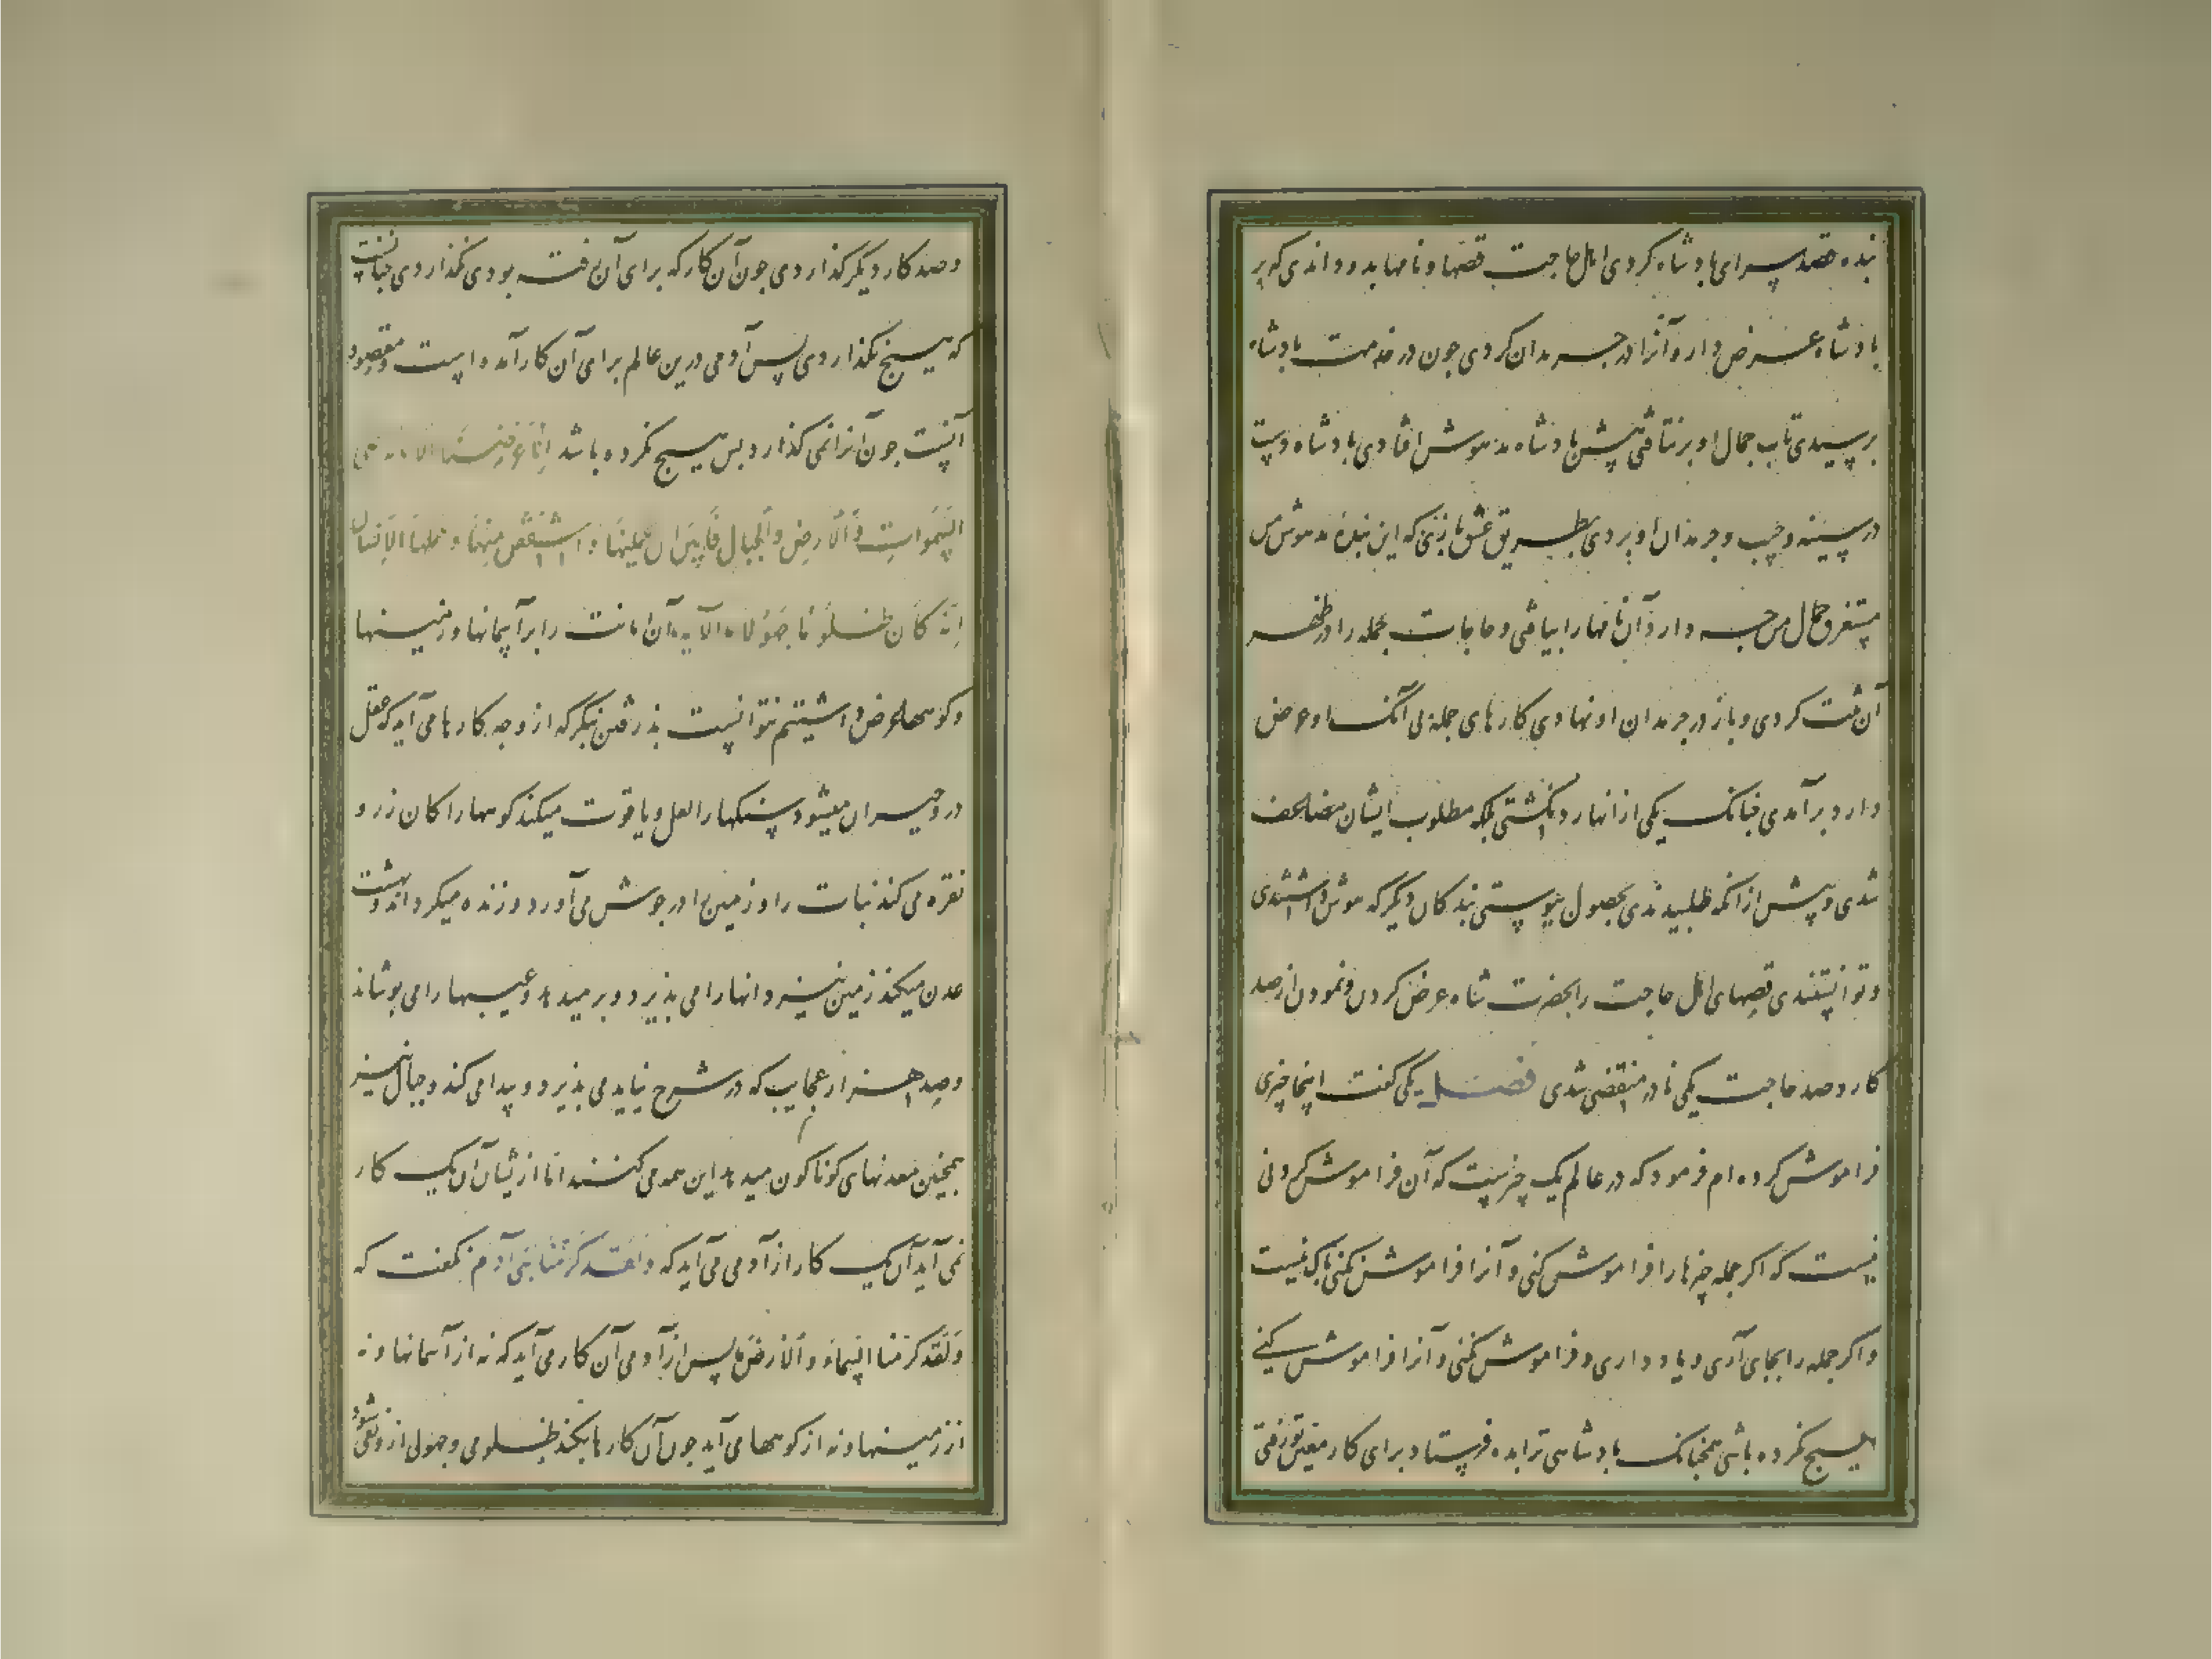 بنده قصد سرای پادشاه کردی اهل حاجت قصها و نامها بدو دادندی که بر
پادشاه عرض دار و آنرا در چرمدان کردی چون در خدمت پادشاه
برسیدی تاب جمال او برنتافتی پیش پادشاه مدهوش افتادی پادشاه دست
در سینه و جیب و چرمدان او بردی بطریق عشق بازی که این بنده مدهوش من
مستغرق جمال من چه دارد آن نامها را بیافتی و حاجات جمله را در ظهر
آن ثبت کردی و باز در چرمدان او نهادی کارهای جمله بی آنک او عرض
دارد برآمدی چنانک یکی ازانها رد نگشتی بلکه مطلوب ایشان مضاعف
شدی و پیش ازانکه طلبیدندی بحصول پیوستی بندکان دیکر که هوش داشتندی
و توانستندی قصهای اهل حاجت را بحضرت شاه عرض کردن و نمودن از صد
کار و صد حاجت یکی نادر منقضی شدی فصل یکی گفت اینجا چیزی
فراموش کرده‌ام فرمود که در عالم یک چیزست که آن فراموش کردنی
نیست که اکر جمله چیزها را فراموش کنی و آنرا فراموش نکنی باک نیست
و اکر جمله را بجای آری و یاد داری و فراموش نکنی و آنرا فراموش کنی
هیچ نکرده باشی همچنانک پادشاهی ترا بده فرستاد برای کار معین تو رفتی
و صد کار دیکر گذاردی چون آن کار که برای آن رفته بودی نگذاردی چنانست
که هیچ نگذاردی پس آدمی درین عالم برای آن کار آمده است و مقصود
آنست چون آنرا نمی گذارد پس هیچ نکرده باشد اِنّا عَرَضْنَا الاَمانَةَ عَلی
السَّمواتِ وَالاَرضِ وَالجِبالِ فَاَبَیْنَ اَن یَحمِلنَها وَ اَشْفَقْنَ مِنها وَ حَمَلَهَا الاِنسانُ
اِنَّهُ کانَ ظَلُوماً جَهُولاً الآیه آن امانت را بر آسمانها و زمینها
و کوهها عرض داشتیم نتوانست پذیرفتن بنگر که ازو چه کارها می آید که عقل
درو حیران میشود سنگها را لعل و یاقوت میکند کوهها را کان زر و
نقره می کند نبات را و زمین را در جوش می آورد و زنده میکرداند و بهشت
عدن میکند زمین نیز دانها را می پذیرد و بر میدهد و عیبها را می پوشاند
و صد هزار عجایب که در شرح نیاید می پذیرد و پیدا می کند و جبال نیز
همچنین معدنهای کوناکون میدهد این همه می کنند اما ازیشان آن یک کار
نمی آید آن یک کار از آدمی می آید که وَلَقَد کَرَّمنا بَنی آدَم نکفت که
وَلَقَد کَرَّمنا السَّماءَ وَالاَرضَ پس از آدمی آن کار می آید که نه از آسمانها و نه
از زمینها و نه از کوهها می آید چون آن کارها بکند ظلومی و جهولی ازو نفی شود